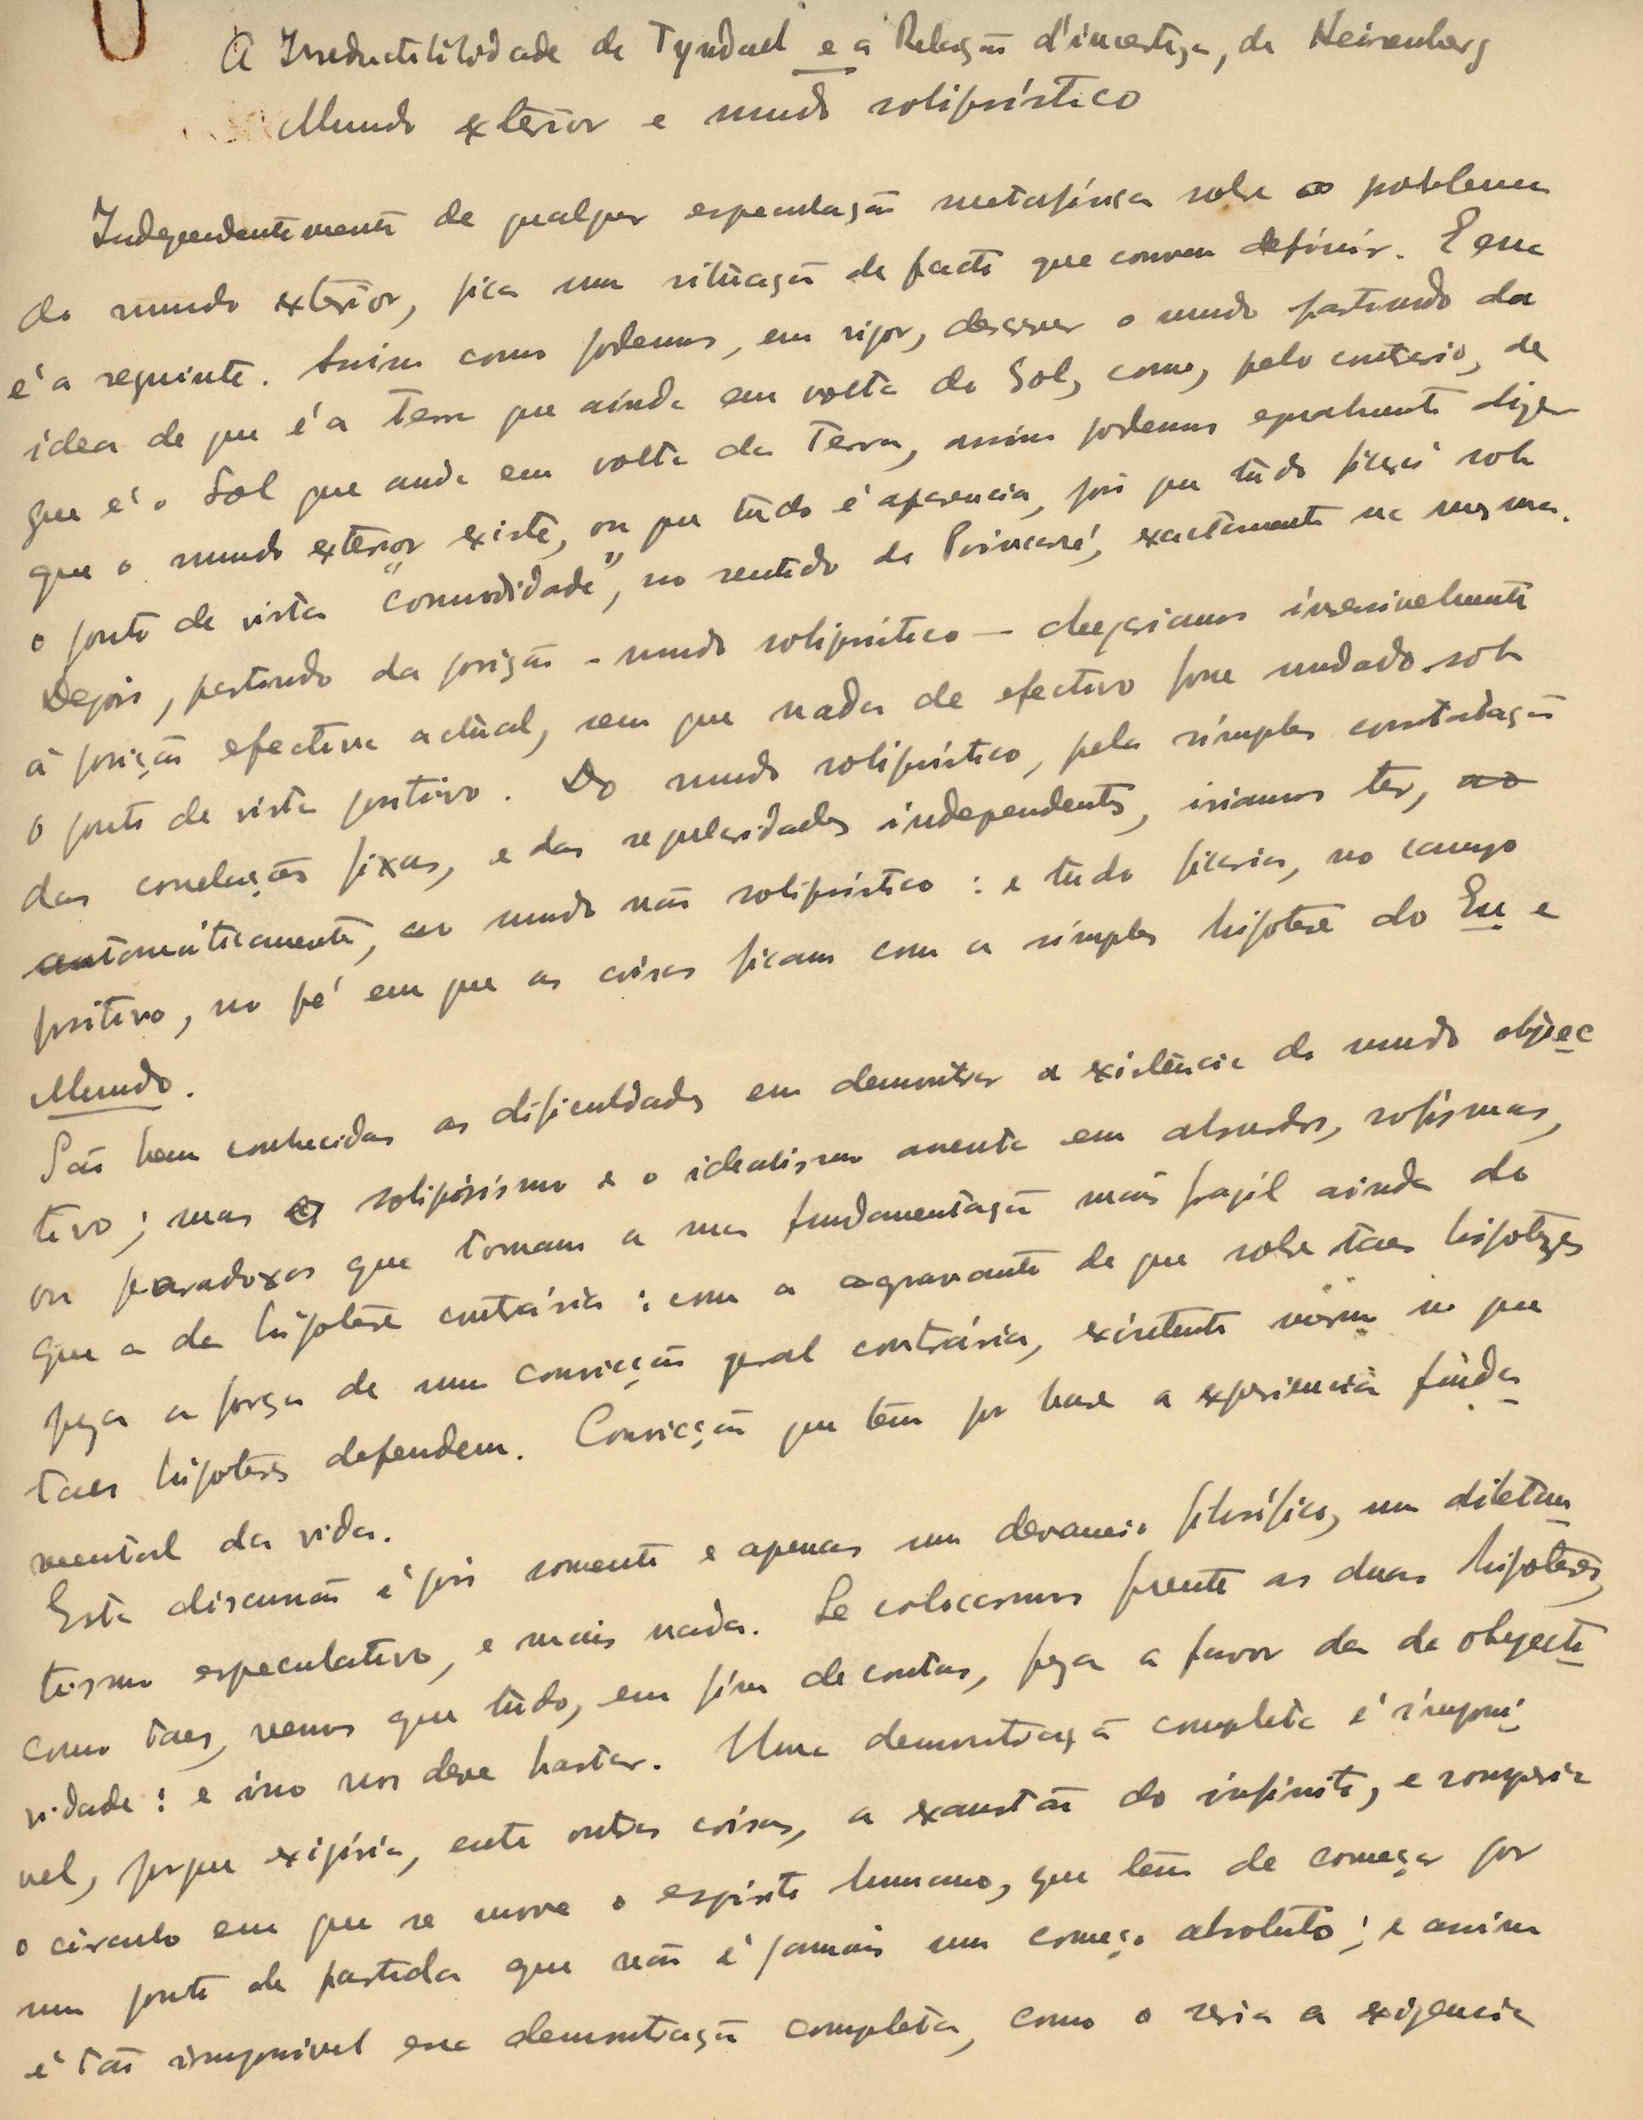 A Irreductibilidade de Tyndall e a Relação d'incerteza, de Heisenberg
Mundo exterior e mundo solipsístico
Independentemente de qualquer especulação metafísica sobre o problema
do mundo exterior, fica uma situação de facto que convem definir. E essa
é a seguinte. Assim como podemos, em rigor, descrever o mundo partindo da
idea de que é a Terra que anda em volta do Sol, como, pelo contario, de
que é o Sol que anda em volta da Terra, assim podemos egualmente dizer
que o mundo exterior existe, ou que tudo é aparencia, pois que tudo ficará sob
o ponto de vista "comodidade", no sentido de Poincaré, exactamente na mesma.
Depois, partindo da posição - mundo solipsístico - chegariamos insensivelmente
á posição efectiva actual, sem que nada de efectivo fosse mudado sob
o ponto de vista positivo. Do mundo solipsístico, pela simples constatação
das correlações fixas, e das regularidades independentes, iriamos ter, ao
automáticamente, ao mundo não solipsístico : e tudo ficaria, no campo
positivo, no pé em que as coisas ficam com a simples hipotese do Eu e
Mundo.
São bem conhecidas as dificuldades em demonstrar a existência do mundo objec
tivo ; mas o solipsismo e o idealismo assenta em absurdos, sofismas,
ou paradoxos que tornam a sua fundamentação mais fragil ainda do
que a da hipotese contrária : com a agravante de que sobre taes hipoteses
pesa a força de uma convicção geral contrária, existente mesmo no que
taes hipoteses defendem. Convicção que têm por base a experiencia funda
mental da vida.
Esta discussão é pois somente e apenas um devaneio filosófico, um diletan
tismo especulativo, e mais nada. Se colocarmos frente as duas hipoteses,
como taes, vemos que tudo, em fim de contas, pesa a favor da da objecti
vidade : e isso nos deve bastar. Uma demonstração completa é impossi
vel, porque exigiria, entre outras coisas, a exaustão do infinito, e romperia
o circulo em que se move o espirito humano, que têm de começar por
um ponto de partida que não é jamais um começo absoluto ; e assim
é tão impossivel essa demonstração completa, como o seria a exigencia